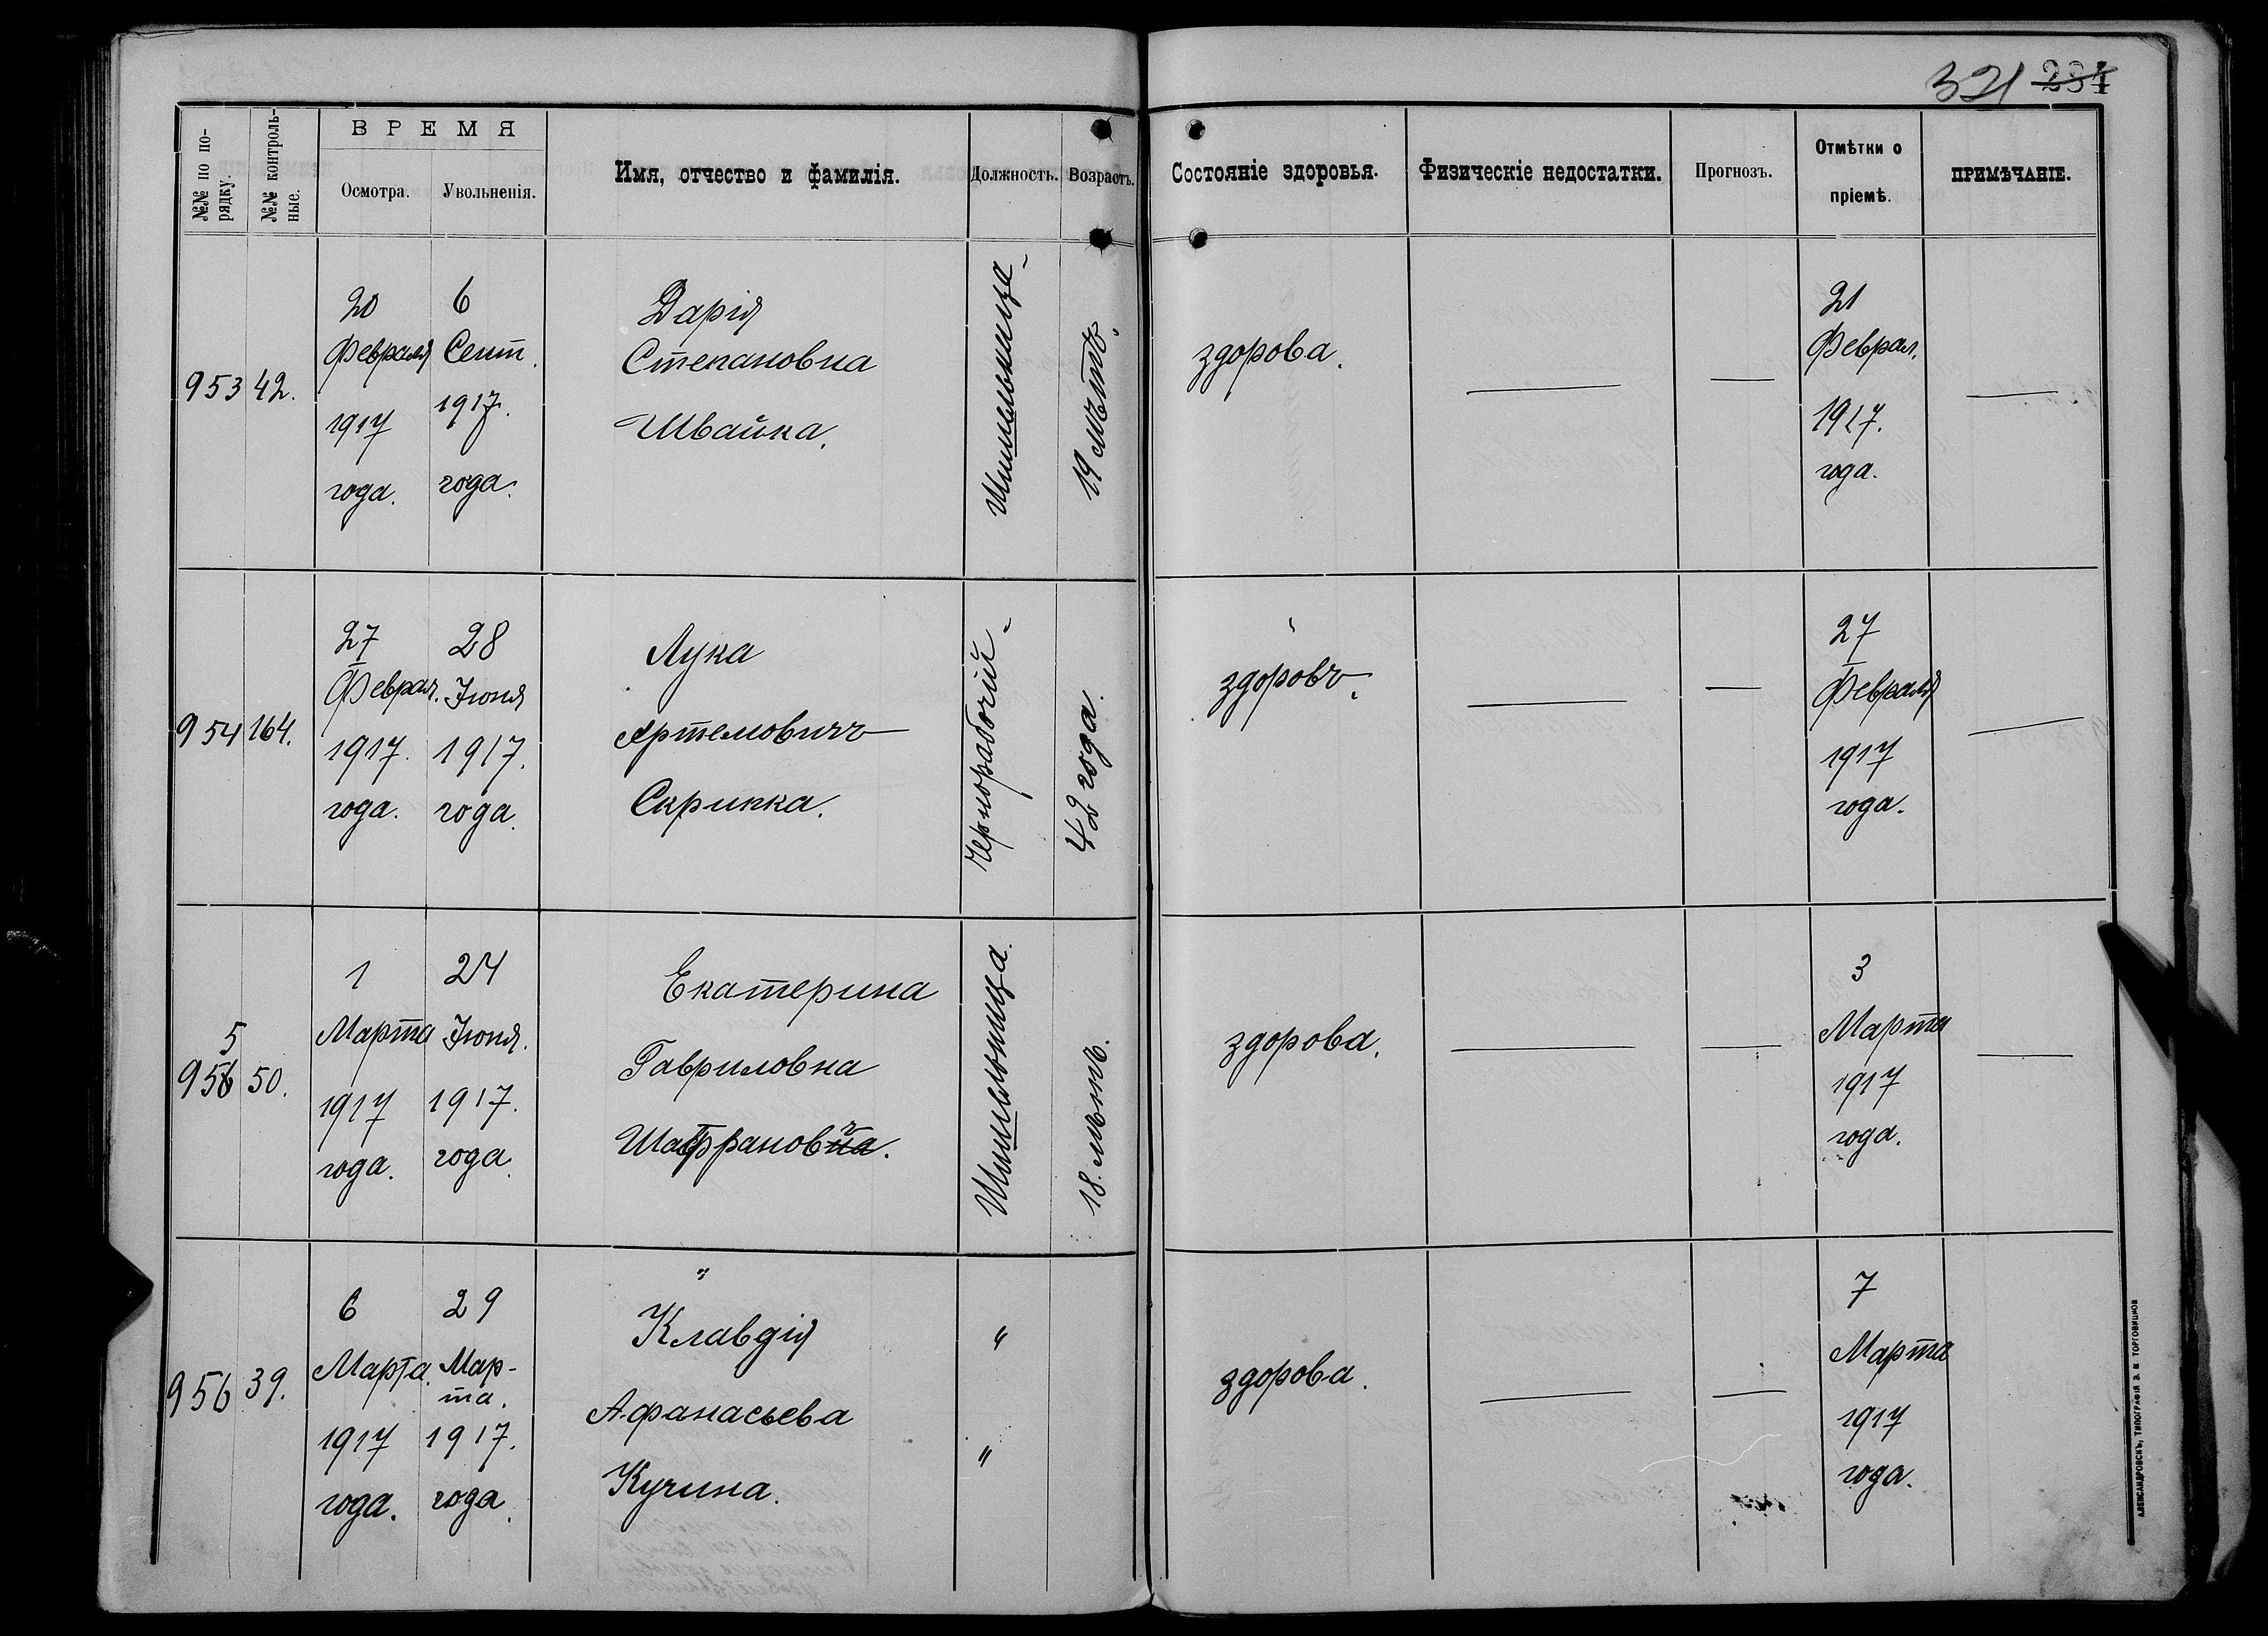 321 234
№№ по по-
рядку.
№№ контроль-
ные.
ВРЕМЯ
Осмотра.
Увольненія.
Имя, отчество и фамилія.
Должность.
Возрастъ.
Состояніе здоровья.
Физическіе недостатки.
Прогнозъ.
Отмѣтки о
пріемѣ.
ПРИМѢЧАНІЕ.
953
42.
20
Февраля
1917
года.
6
Сент.
1917.
года.
Дарія
Степановна
Швайка.
Шпилльница
19 лѣтъ.
здорова.
21
Феврал.
1917.
года.
954
164.
27
Феврал.
1917.
года.
28
Іюня
1917.
года.
Лука
Артемовичъ
Скрипка.
Чернорабочій
42 года.
здоровъ.
27
Февраля
1917
года.
5
956
50.
1
Марта
1917
года.
24
Іюня.
1917.
года.
Екатерина
Гавриловна
18. лѣтъ.
здорова.
3
Марта
1917
года.
956
39.
6
Марта.
1917
года.
29
Мар-
та.
1917.
года.
"
Клавдія
Афанасьева
Кучина.
"
"
здорова.
7
Марта
1917
года.
АЛЕКСАНДРОВСКЪ, ТИПОГРАФІЯ Э. И ТОРГОВИЦКОЙ